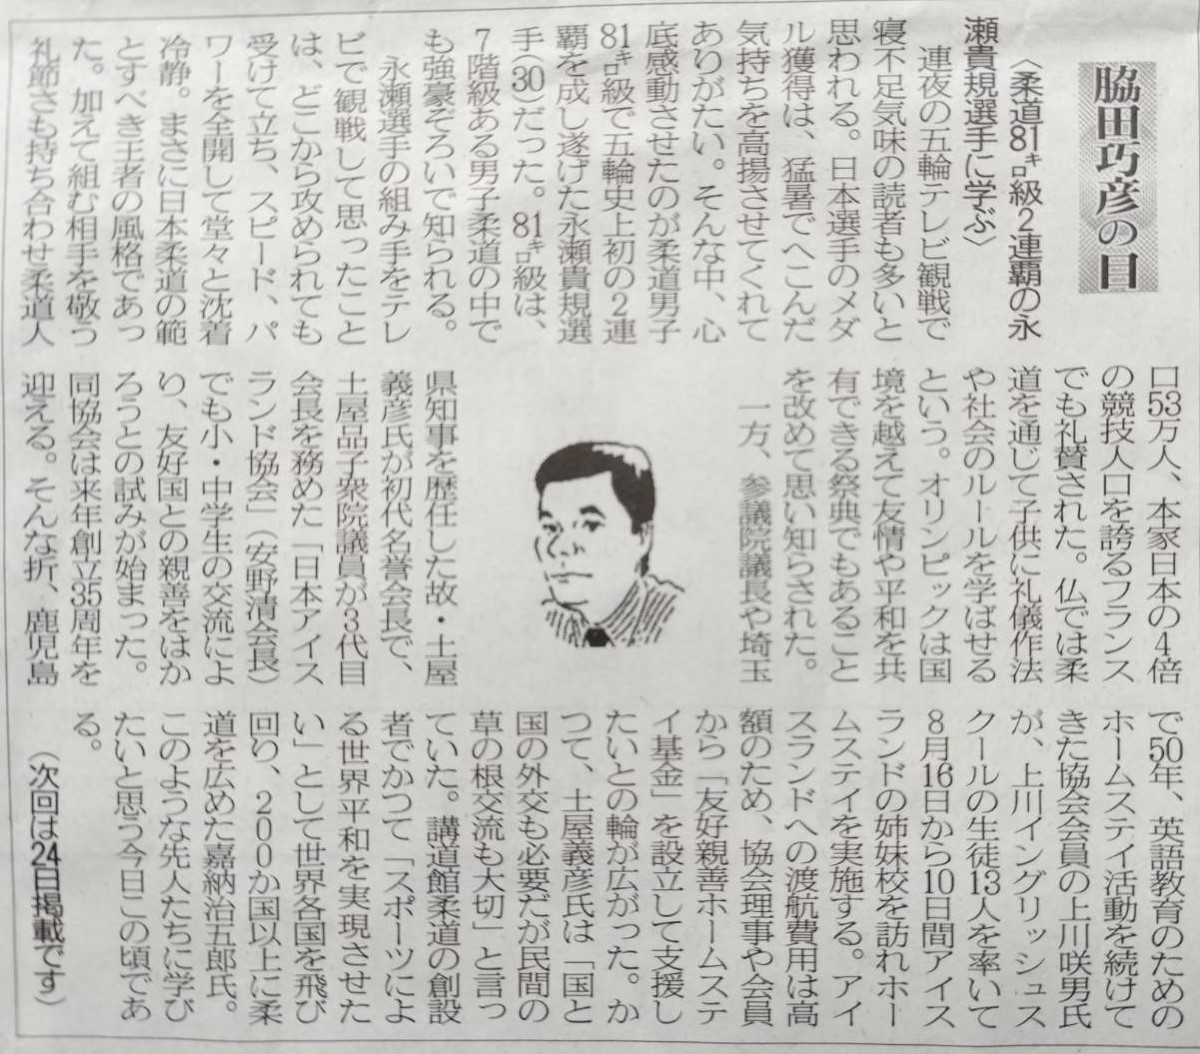 脇田巧彦の目
〈柔道81㌔級2連覇の永
瀬貴規選手に学ぶ〉
連夜の五輪テレビ観戦で
寝不足気味の読者も多いと
思われる。日本選手のメダ
ル獲得は、猛暑でへこんだ
気持ちを高揚させてくれて
ありがたい。そんな中、心
底感動させたのが柔道男子
81㌔級で五輪史上初の2連
覇を成し遂げた永瀬貴規選
手(30)だった。81㌔級は、
7階級ある男子柔道の中で
も強豪ぞろいで知られる。
永瀬選手の組み手をテレ
ビで観戦して思ったこと
は、どこから攻められても
受けて立ち、スピード、パ
ワーを全開して堂々と沈着
冷静。まさに日本柔道の範
とすべき王者の風格であっ
た。加えて組む相手を敬う
礼節さも持ち合わせ柔道人
口53万人、本家日本の4倍
の競技人口を誇るフランス
でも礼賛された。仏では柔
道を通じて子供に礼儀作法
や社会のルールを学ばせる
という。オリンピックは国
境を越えて友情や平和を共
有できる祭典でもあること
を改めて思い知らされた。
一方、参議院議長や埼玉
県知事を歴任した故・土屋
義彦氏が初代名誉会長で、
土屋品子衆院議員が3代目
会長を務めた「日本アイス
ランド協会」(安野清会長)
でも小・中学生の交流によ
り、友好国との親善をはか
ろうとの試みが始まった。
同協会は来年創立35周年を
迎える。そんな折、鹿児島
で50年、英語教育のための
ホームステイ活動を続けて
きた協会会員の上川咲男氏
が、上川イングリッシュス
クールの生徒13人を率いて
8月16日から10日間アイス
ランドの姉妹校を訪れホー
ムステイを実施する。アイ
スランドへの渡航費用は高
額のため、協会理事や会員
から「友好親善ホームステ
イ基金」を設立して支援し
たいとの輪が広がった。か
つて、土屋義彦氏は「国と
国の外交も必要だが民間の
草の根交流も大切」と言っ
ていた。講道館柔道の創設
者でかつて「スポーツによ
る世界平和を実現させた
い」として世界各国を飛び
回り、200か国以上に柔
道を広めた嘉納治五郎氏。
このような先人たちに学び
たいと思う今日この頃であ
る。
(次回は24日掲載です)